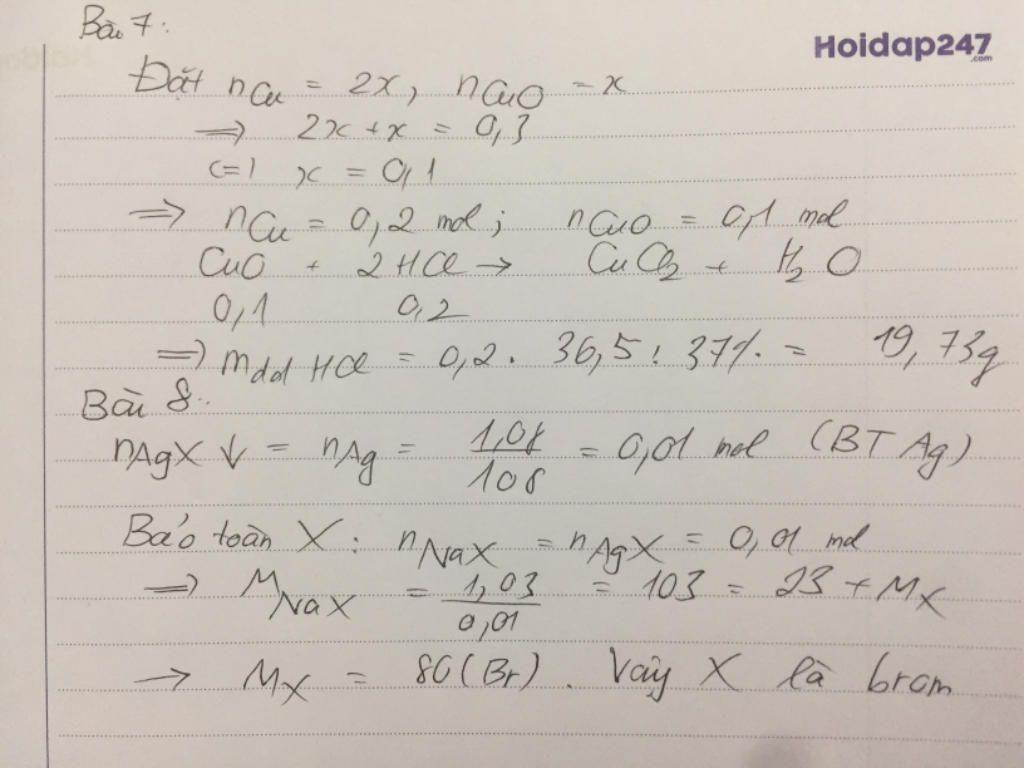 Bài 7:
Hoidap247
.com
Đặt nCu = 2x, nCuO = x
=> 2x + x = 0,3
<=> x = 0,1
=> nCu = 0,2 mol; nCuO = 0,1 mol
CuO + 2HCl → CuCl2 + H2O
0,1 0,2
=> mdd HCl = 0,2 . 36,5 : 37% = 19,73g
Bài 8:
nAgX ↓ = nAg = 1,08/108 = 0,01 mol (BT Ag)
Bảo toàn X: nNaX = nAgX = 0,01 mol
=> MNaX = 1,03/0,01 = 103 = 23 + MX
→ MX = 80 (Br). Vậy X là brom